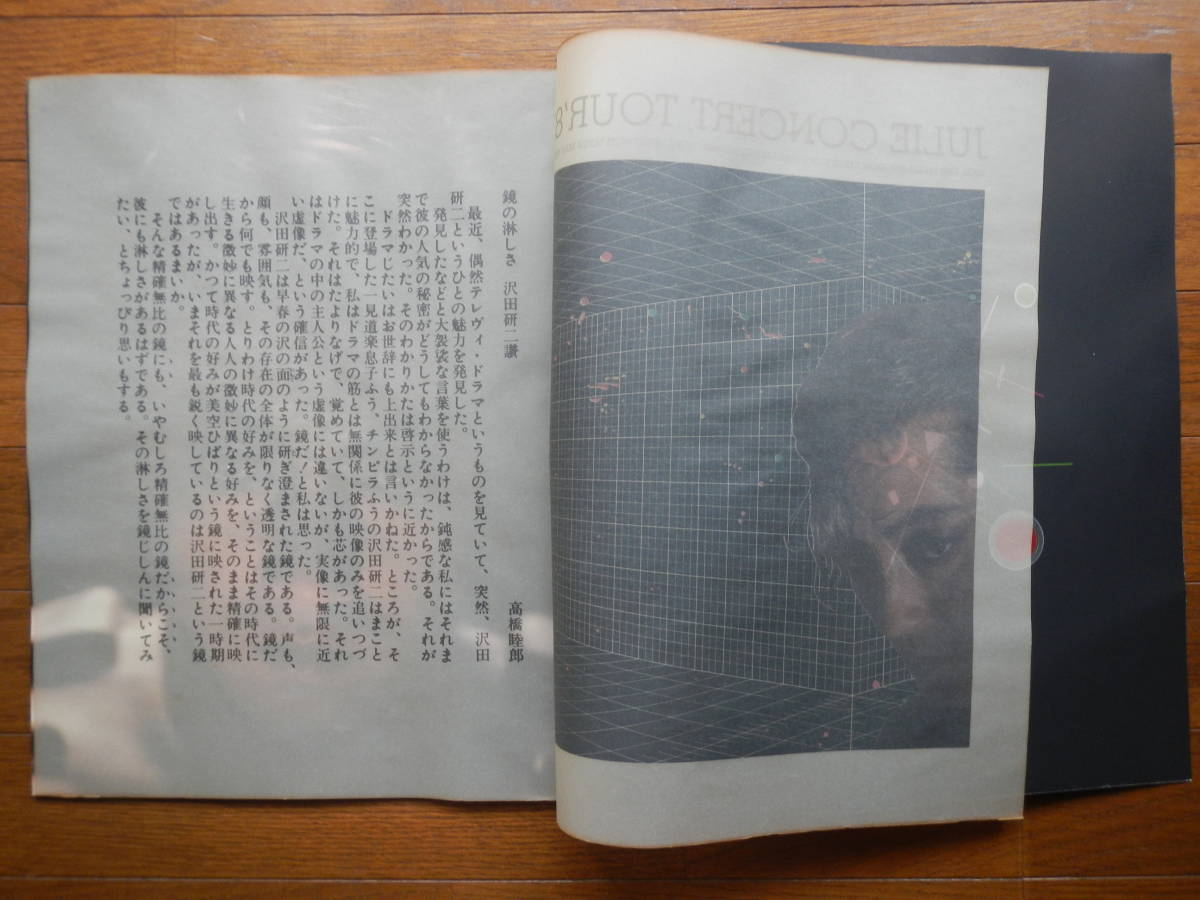 鏡の淋しさ 沢田研二讃
高橋睦郎
最近、偶然テレヴィ・ドラマというものを見ていて、突然、沢田
研二というひとの魅力を発見した。
発見したなどと大袈裟な言葉を使うわけは、鈍感な私にはそれま
で彼の人気の秘密がどうしてもわからなかったからである。それが
突然わかった。そのわかりかたは啓示というに近かった。
ドラマじたいはお世辞にも上出来とは言いかねた。ところが、そ
こに登場した一見道楽息子ふう、チンピラふうの沢田研二はまこと
に魅力的で、私はドラマの筋とは無関係に彼の映像のみを追いつづ
けた。それはたよりなげで、覚めていて、しかも芯があった。それ
はドラマの中の主人公という虚像には違いないが、実像に無限に近
い虚像だ、という確信があった。鏡だ!と私は思った。
沢田研二は早春の沢の面のように研ぎ澄まされた鏡である。声も、
顔も、雰囲気も、その存在の全体が限りなく透明な鏡である。鏡だ
から何でも映す。とりわけ時代の好みを、ということはその時代に
生きる微妙に異なる人人の微妙に異なる好みを、そのまま精確に映
し出す。かつて時代の好みが美空ひばりという鏡に映された一時期
があったが、いまそれを最も鋭く映しているのは沢田研二という鏡
ではあるまいか。
そんな精確無比の鏡にも、いやむしろ精確無比の鏡だからこそ、
彼にも淋しさがあるはずである。その淋しさを鏡じしんに聞いてみ
たい、とちょっぴり思いもする。
JULIE CONCERT TOUR '8